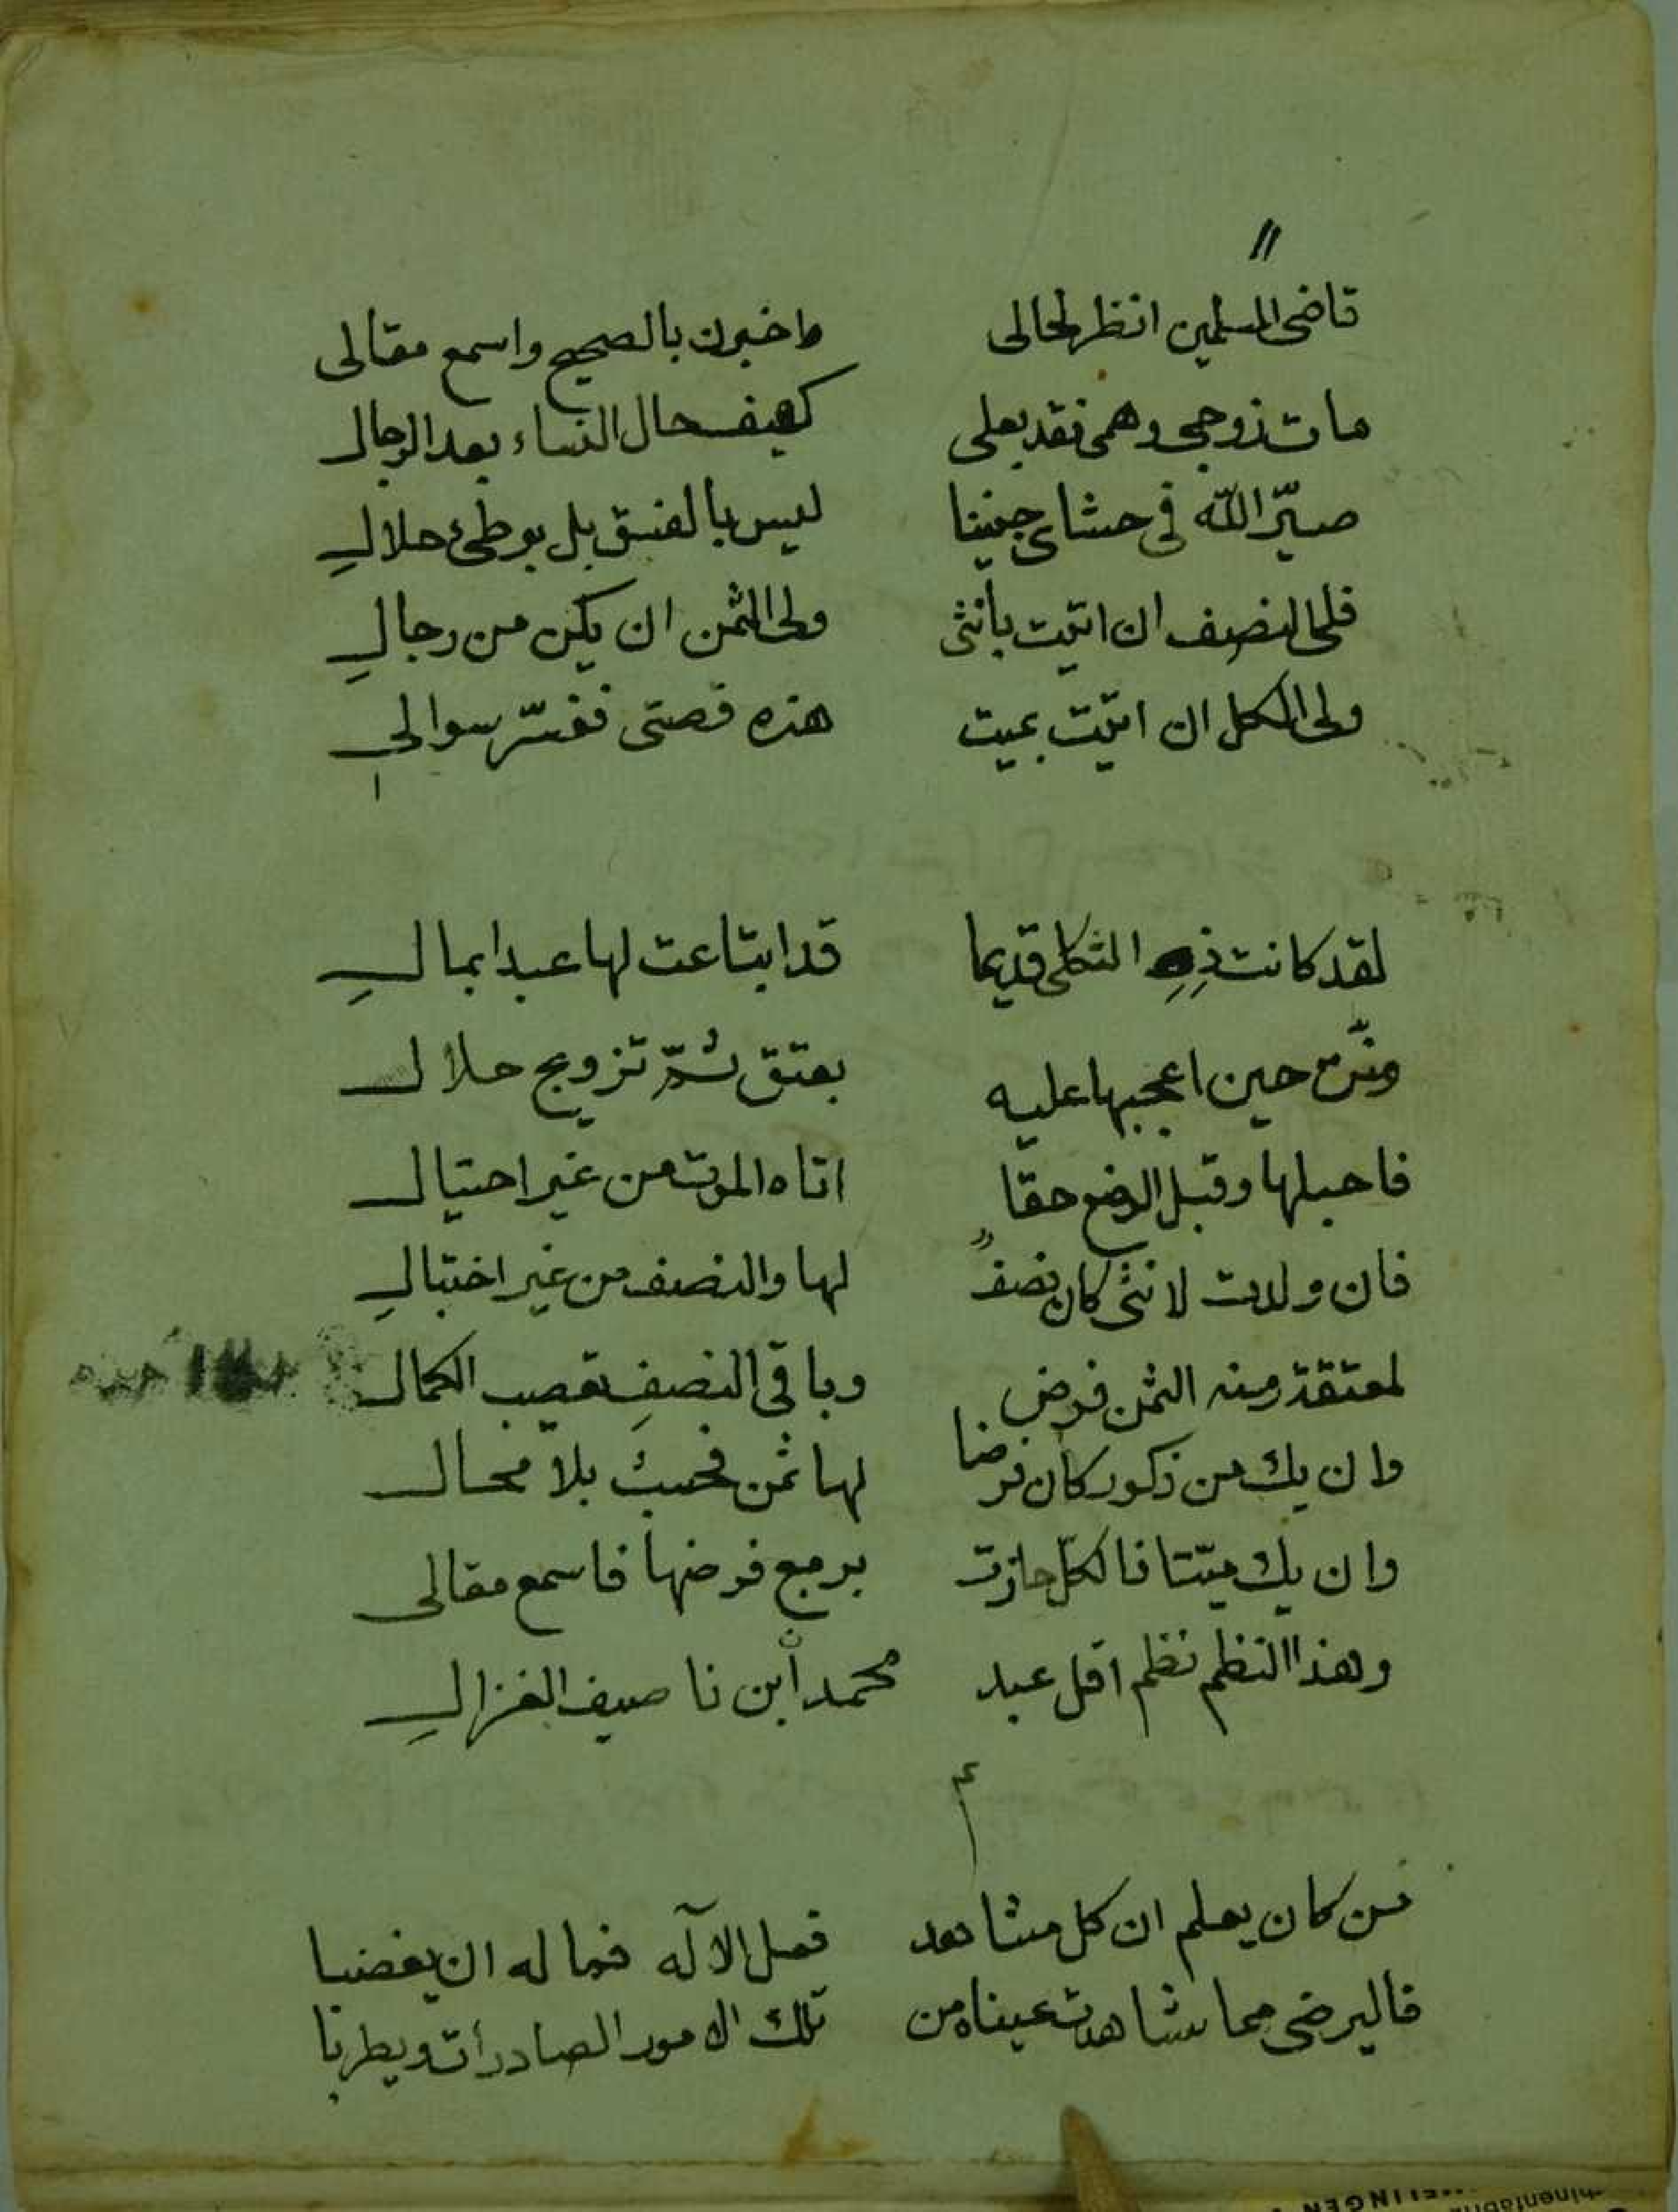 قاضى المسلمين انظر لحالى واخبرن بالصحيح واسمع مقالى
مات زوجى وهمى فقد بعلى كيف حال النساء بعد الرجال
صيّر الله فى حشاى جنينا ليس بالفسق بل بوطئ حلالِ
فلى النصف ان اتيت بأنثى ولى الثمن ان يكن من رجالِ
ولى الكل ان اتيت بميت هذه قصتى ففسّر سوالى
لقد كانت ذِهِ الثكلى قديما قد ابتاعت لها عبدا بمالِ
ومنّت حين اعجبها عليه بعتق ثُمّ تزويج حلال
فاحبلها وقبل الوضع حقا اتاه الموت من غير احتيال
فان ولدت لانثى كان نصفٌ لها والنصف من غير اختبالِ
لمعتقة ومنه الثمن فرض وباقى النصفِ تعصيب الكمال
وان يك من ذكور كان فرضا لها ثمن فحسبُ بلا محال
وان يك ميّتا فالكلّ حازت برمبع فرضها فاسمع مقالى
وهذا النظم نظم اقل عبد محمد ابن ناصيف الغزالِ
فمن كان يعلم ان كل مشاهد فعل الآله فما له ان يغضبا
فاليرضى مما شاهدت عيناه من تلك الامور الصادرات ويطربا